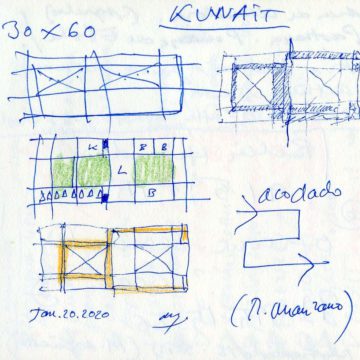 KUWAIT
30 x 60
K B B
L
B
acodado
Jan. 20. 2020